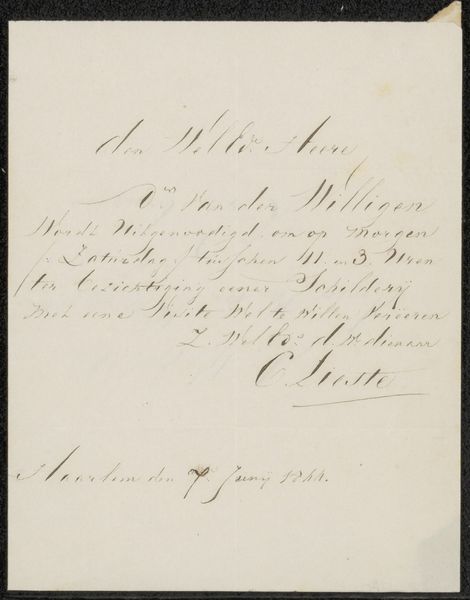 den WelEd. Heere
Dr. Van der Willigen
Wordt Uitgenoodigd om op morgen
(: Zaturdag :) tusschen 11 en 3 Uren
ter bezichtiging eener Schilderij
met eene Visite Wel te Willen Vereeren
Z. WelEd. d. W. dienaar
C. Lieste
Haarlem den 7. Junij 1844.